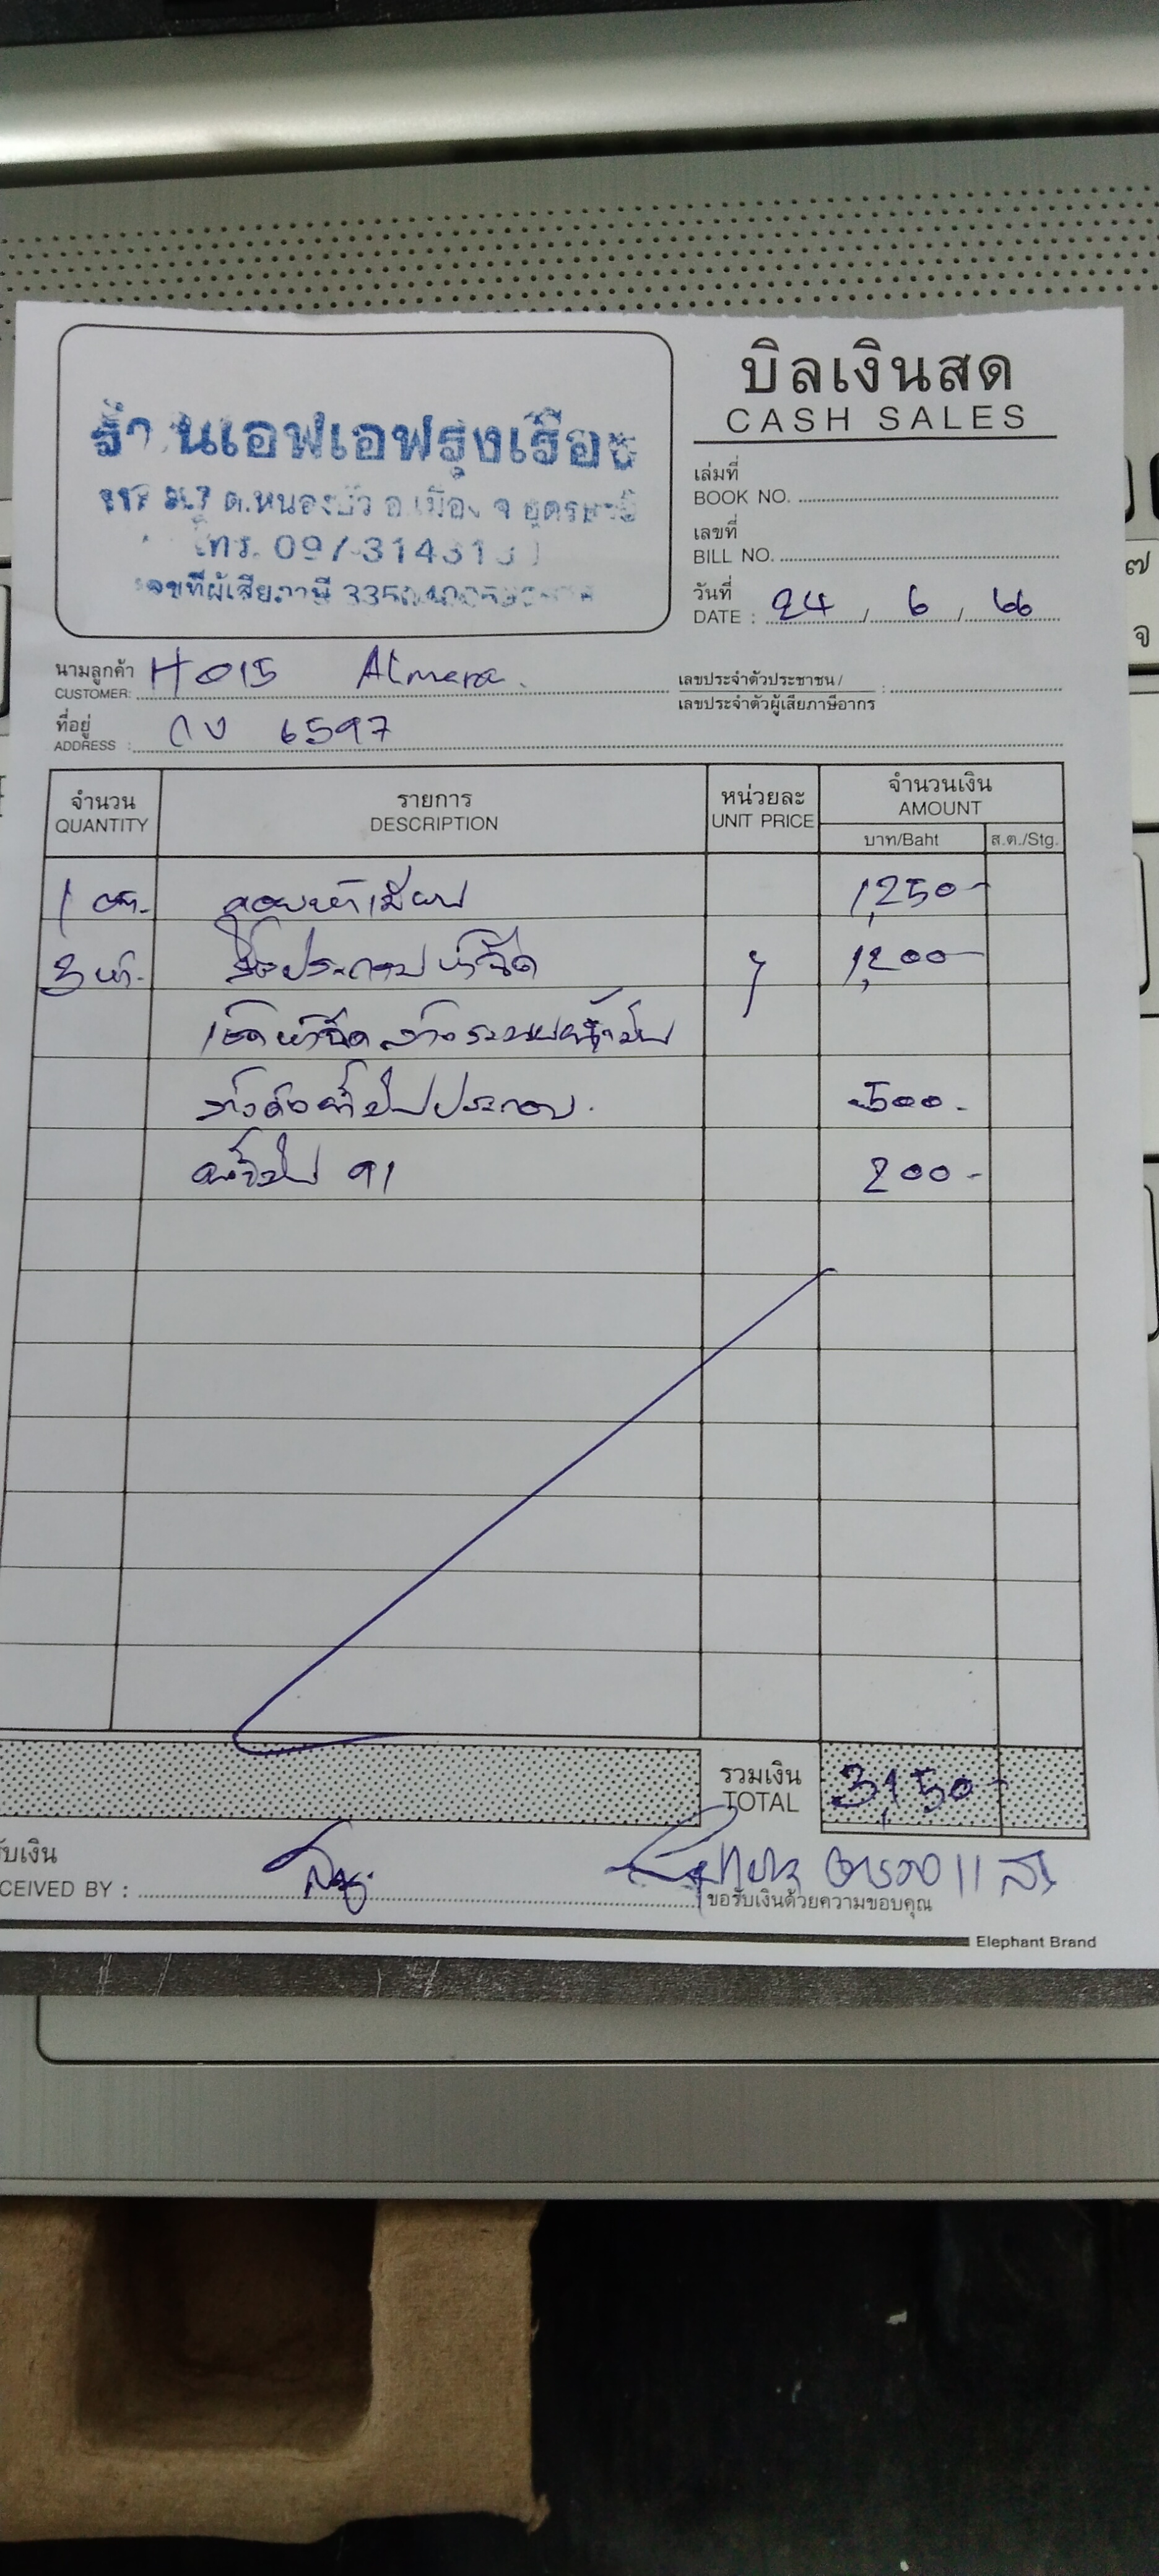 บิลเงินสด
CASH SALES
ร้านเอฟเอฟรุ่งเรือง
ต.หนองบัว อ.เมือง จ.อุดรธานี
โทร. 097-314313
เลขที่ผู้เสียภาษี
เล่มที่
BOOK NO.
เลขที่
BILL NO.
วันที่
DATE : 24 / 6 / 66
นามลูกค้า H015 Almera.
CUSTOMER:
เลขประจำตัวประชาชน /
เลขประจำตัวผู้เสียภาษีอากร :
ที่อยู่ 6597
ADDRESS :
จำนวน รายการ หน่วยละ จำนวนเงิน
QUANTITY DESCRIPTION UNIT PRICE AMOUNT
บาท/Baht ส.ต./Stg.
1 คอยหัวเทียน 1,250-
3 หัว. 1,200-
ล้างถังน้ำมันประกอบ. 500.-
น้ำมัน 91 200-
รวมเงิน 3,150-
TOTAL
รับเงิน
CEIVED BY :
ขอรับเงินด้วยความขอบคุณ
Elephant Brand